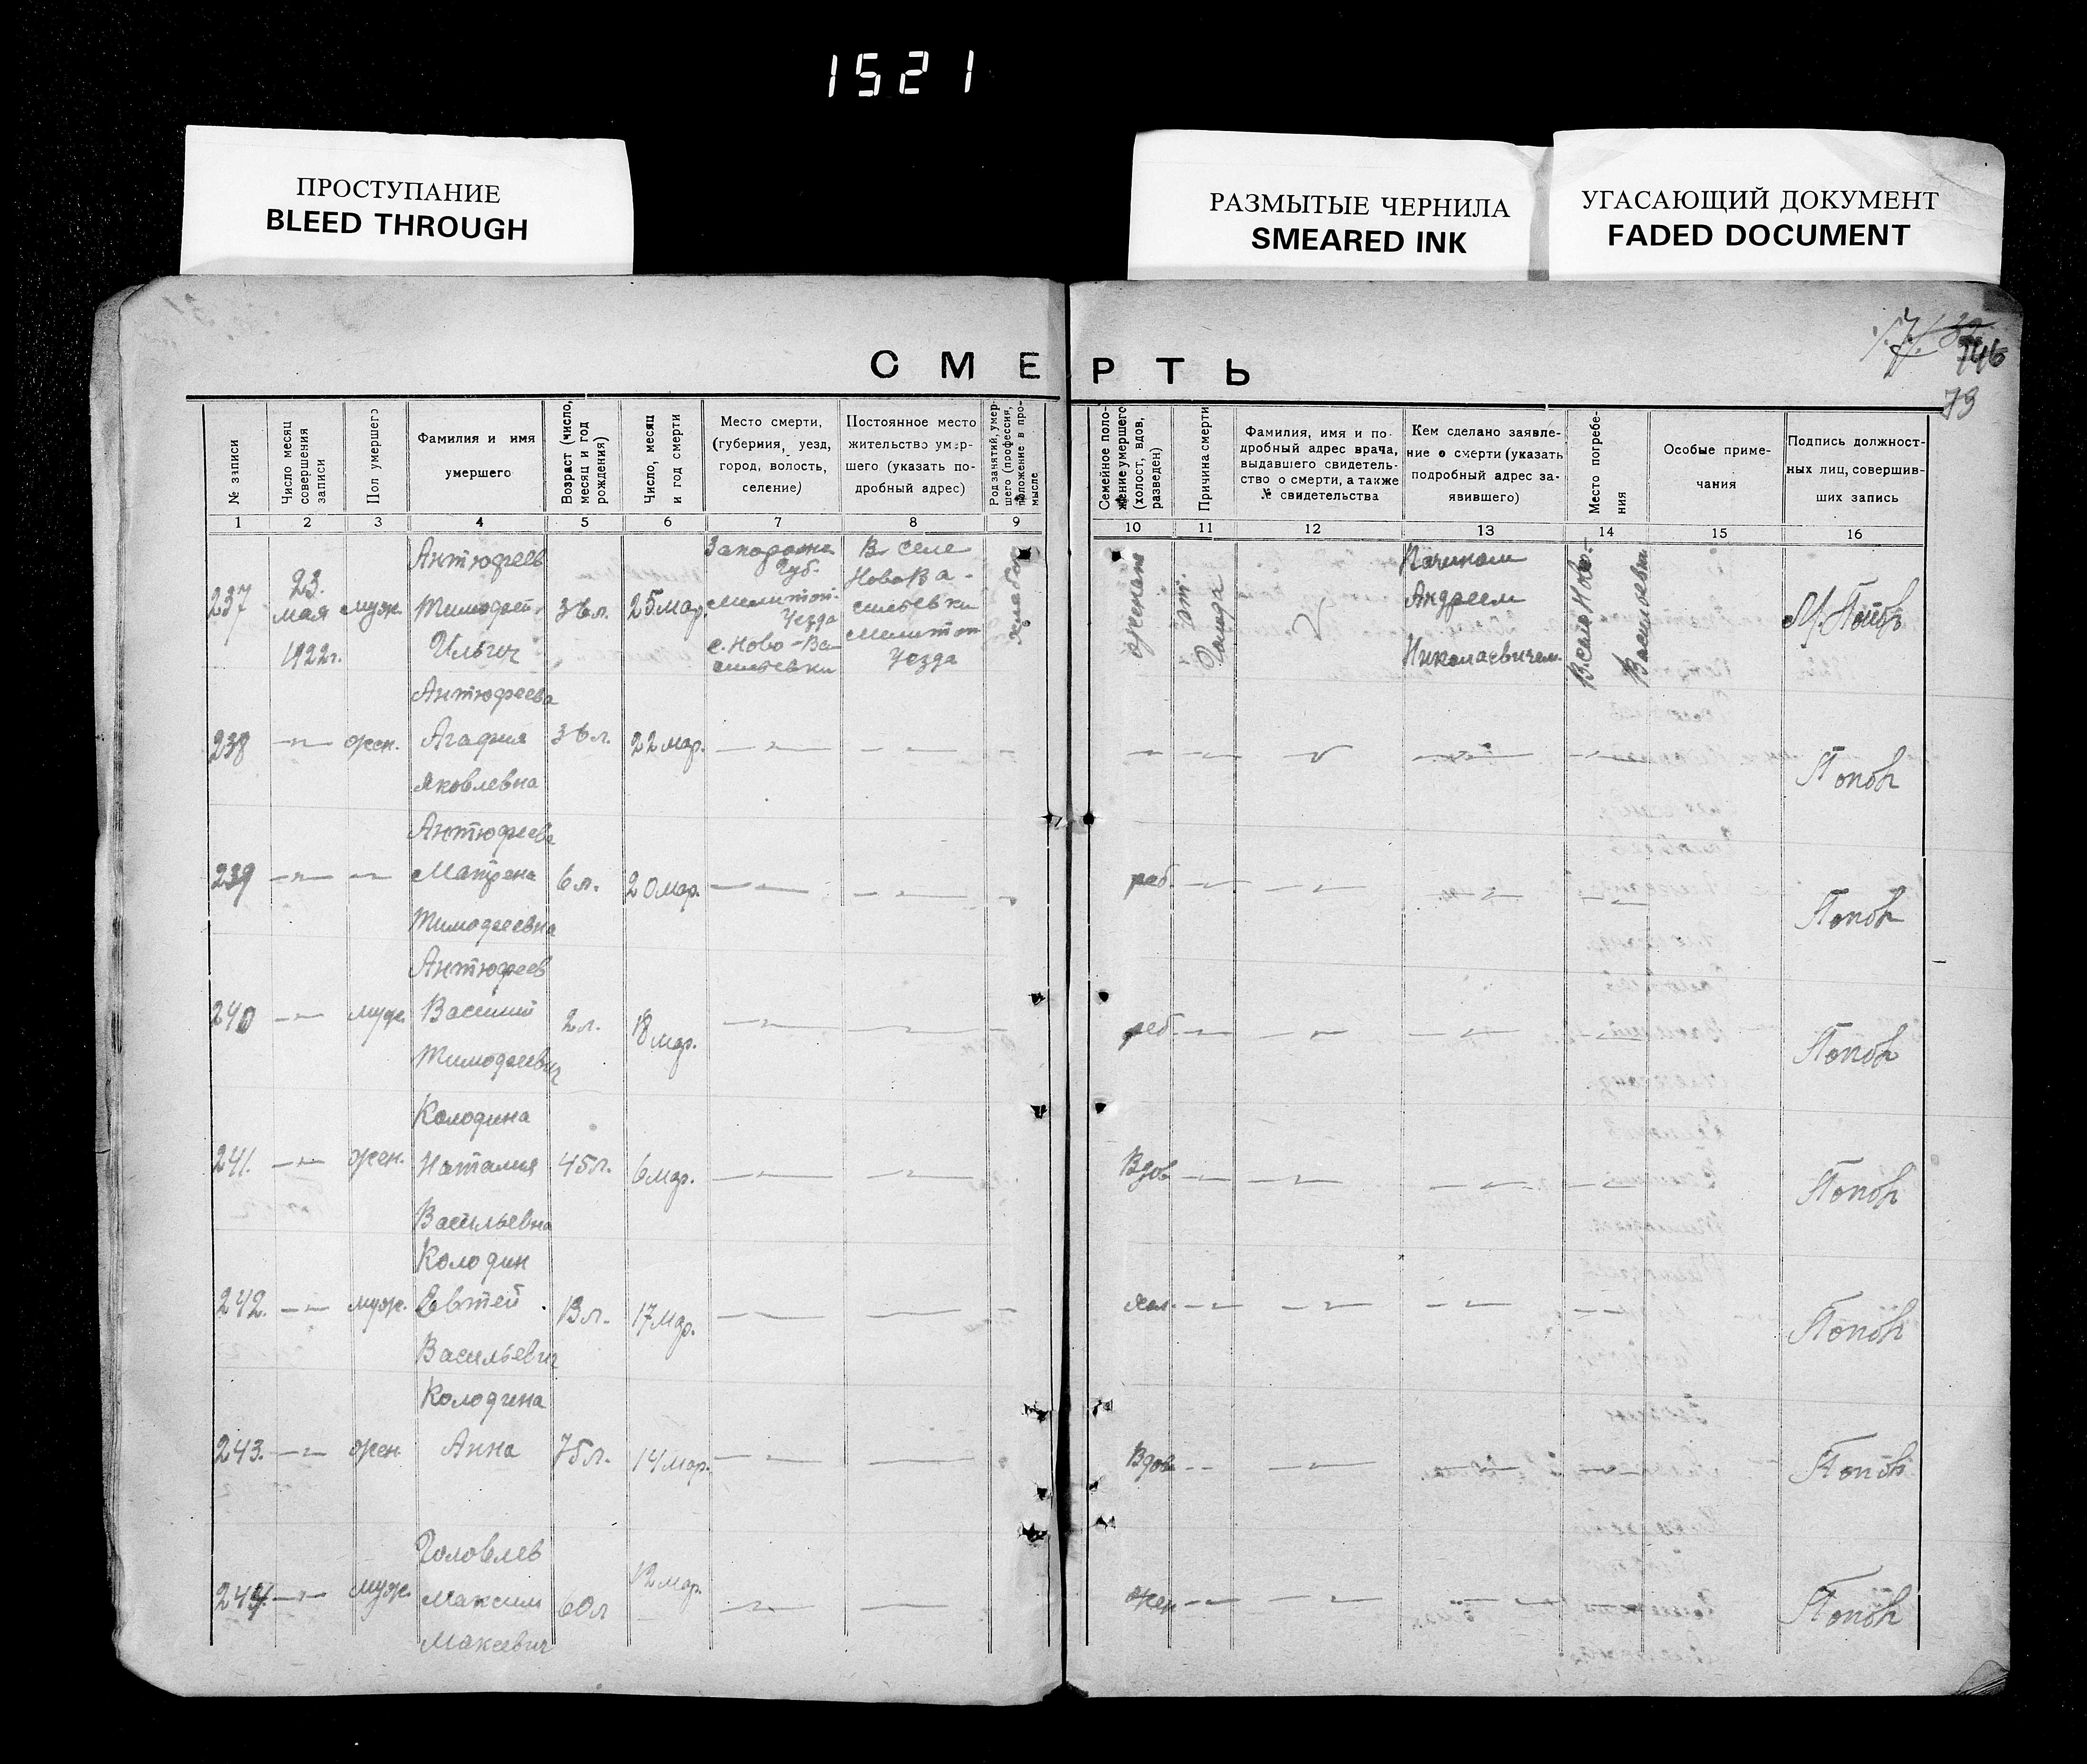 1521
ПРОСТУПАНИЕ
BLEED THROUGH
РАЗМЫТЫЕ ЧЕРНИЛА
SMEARED INK
УГАСАЮЩИЙ ДОКУМЕНТ
FADED DOCUMENT
146
73
СМЕРТЬ
№ записи
Число месяц
совершения
записи
Пол умершего
Фамилия и имя
умершего
Возраст (число,
месяц и год
рождения)
Число, месяц
и год смерти
Место смерти,
(губерния, уезд,
город, волость,
селение)
Постоянное место
жительство умер-
шего (указать по-
дробный адрес)
Род занятий, умер-
шего (профессия,
положение в про-
мысле
Семейное поло-
жение умершего
(холост, вдов,
разведен)
Причина смерти
Фамилия, имя и по-
дробный адрес врача,
выдавшего свидетель-
ство о смерти, а также
№ свидетельства
Кем сделано заявле-
ние о смерти (указать
подробный адрес за-
явившего)
Место погребе-
ния
Особые приме-
чания
Подпись должност-
ных лиц, совершив-
ших запись
1 2 3 4 5 6 7 8 9 10 11 12 13 14 15 16
237
23.
мая
1922г.
муж.
Антюфеев
Тимофей
Ильич
36л.
25мар.
Запорожск.
Губ.
Мелитоп.
Уезда
с. Ново-Ва-
сильевки
В селе
Ново Ва-
сильевки
Мелитоп
Уезда
хлебор
женат
От.
голода
Андреем
Николаевичем
В. село Ново-
Васильевки
Попов
238
—"—
жен.
Антюфеева
Агафия
Яковлевна
36л.
22мар.
Попов
239
—"—
—"—
Антюфеева
Матрена
Тимофеевна
6л.
20мар.
реб.
Попов
240
—"—
муж.
Антюфеев
Василий
Тимофеевич
2л.
18мар.
реб.
Попов
241.
—"—
жен.
Колодина
Наталия
Васильевна
45л.
6мар.
Вдов
Попов
242.
—"—
муж.
Колодин
Евтей
Васильевич
13л.
17мар.
Попов
243.
—"—
жен
Анна
75л.
14мар.
Вдов
Попов
244
—"—
муж.
Головлев
Максим
60л
12мар.
жен
Попов